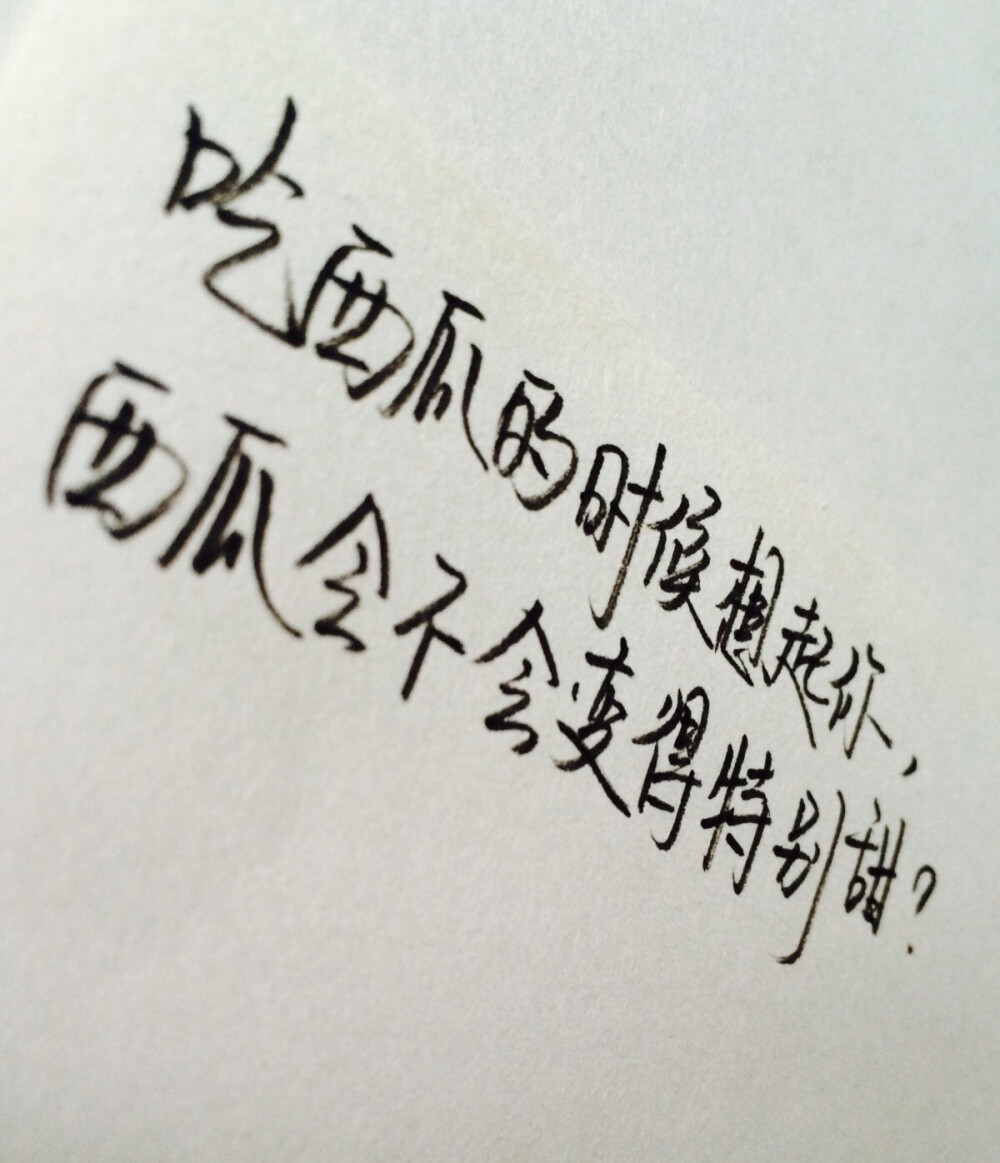 吃西瓜的时候想起你,
西瓜会不会变得特别甜?